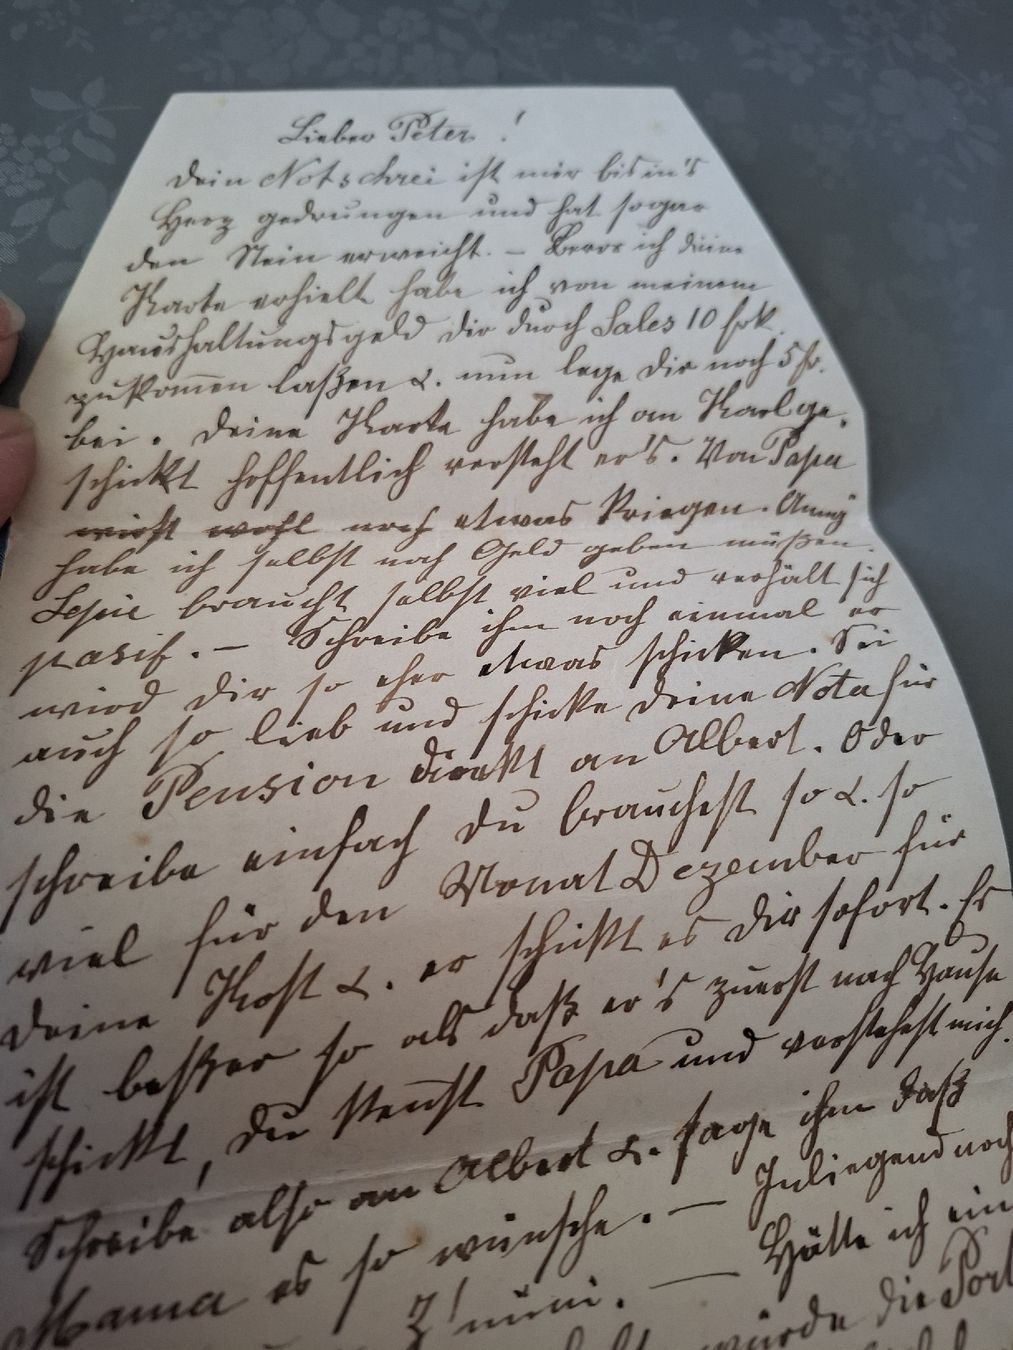 Lieber Peter!
Dein Notschrei ist mir bis in's
Herz gedrungen und hat sogar
den Stein erweicht. – Bevor ich deine
Karte erhielt habe ich von meinem
Haushaltungsgeld dir durch Sales 10 frk.
zukom̄en laßen &. nun lege dir noch 5 fr.
bei. Deine Karte habe ich an Karl ge,
schickt hoffentlich versteht er's. Von Papa
wirst wohl noch etwas kriegen. Anny
habe ich selbst noch Geld geben müßen.
braucht selbst viel und verhält sich
pasif. – Schreibe ihm noch einmal er
wird dir so eher etwas schicken. Sei
auch so lieb und schicke deine Nota für
die Pension direkt an Albert. Oder
schreibe einfach du brauchest so &. so
viel für den Monat Dezember für
deine Kost &. er schickt es dir sofort. Es
ist beßer so als daß er's zuerst nach Hause
schickt, du ken̄st Papa und verstehst mich.
Schreibe also an Albert &. sage ihm daß
Mama es so wünsche. — Inliegend noch
Z'nüni. — Hätte ich ein
würde die